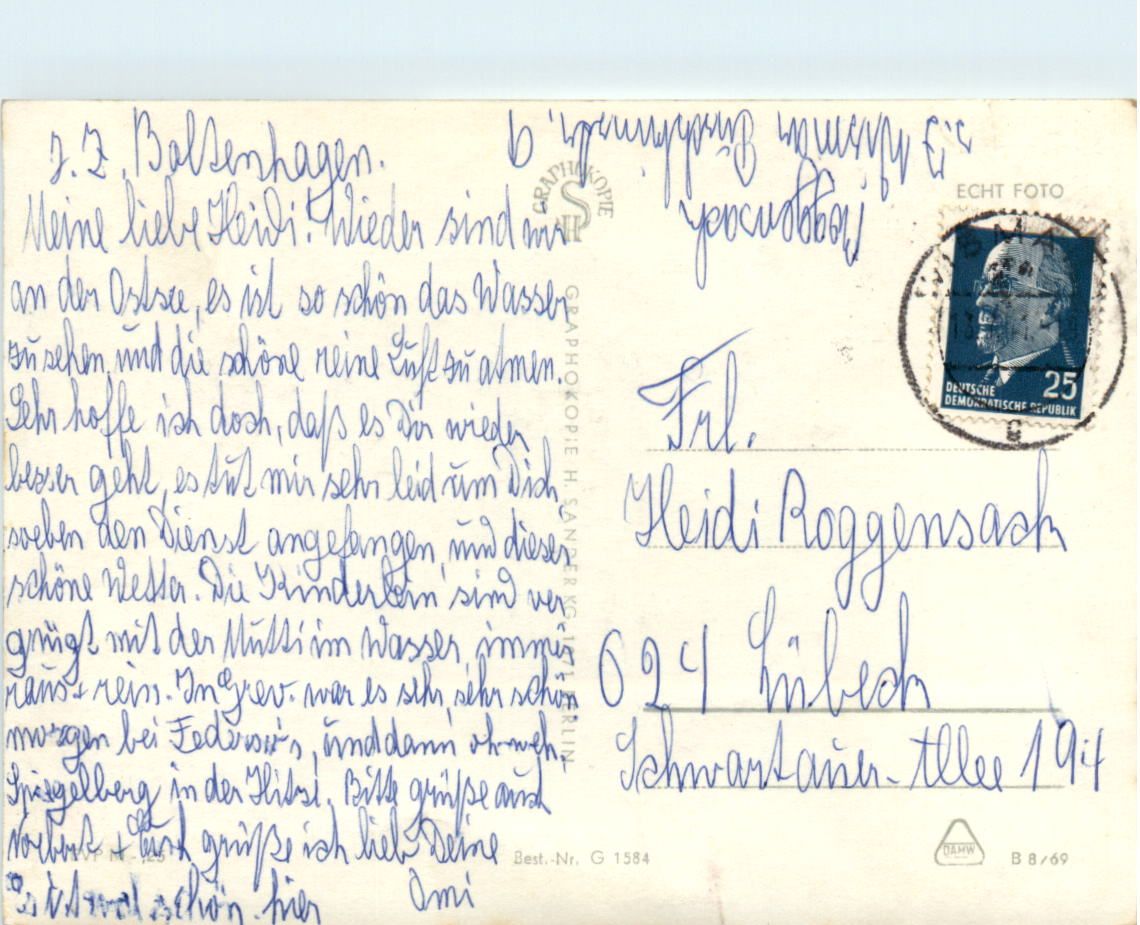 z. Z. Boltenhagen.
Meine liebe Heidi! Wieder sind wir
an der Ostsee, es ist so schön das Wasser
zu sehen, und die schöne reine Luft zu atmen.
Sehr hoffe ich doch, daß es Dir wieder
besser geht, es tut mir sehr leid um Dich,
soeben den Dienst angefangen, und dieses
schöne Wetter. Die Kinderlein sind ver-
gnügt mit der Mutti im Wasser, immer
raus + rein. In Grev. war es sehr, sehr schön,
morgen bei, und dann oh weh,
Spiegelberg in der Hitze. Bitte grüße auch
Norbert + Euch grüße ich lieb Deine
Omi
es ist schön hier
Roggensack
GRAPHOKOPIE
H S
GRAPHOKOPIE H. SANDER KG · 1071 BERLIN
ECHT FOTO
WISMAR
DEUTSCHE
DEMOKRATISCHE REPUBLIK
25
Frl.
Heidi Roggensack
624 Lübeck
Schwartauer-Allee 194
EVP M -,25
Best.-Nr. G 1584
DAMW
B 8/69